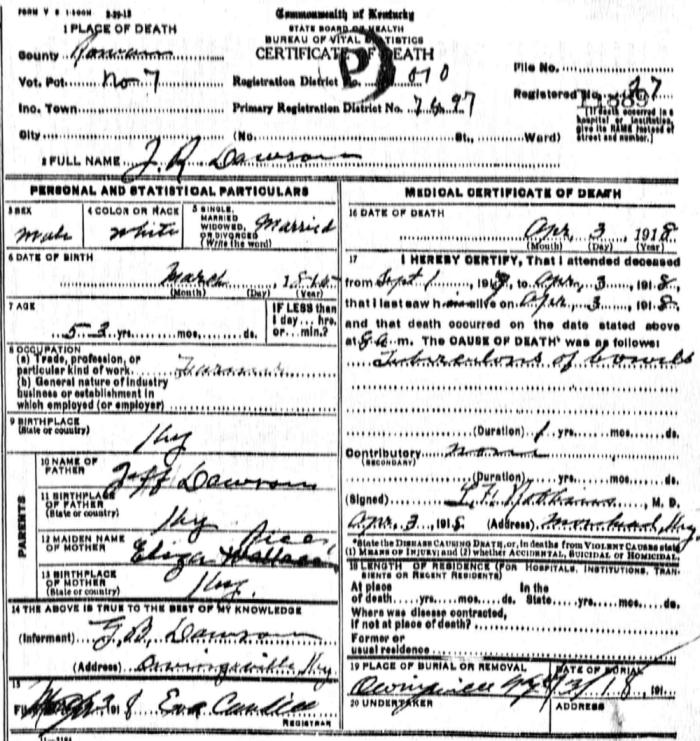 FORM V S 1-100M 3-29-13
Commonwealth of Kentucky
STATE BOARD OF HEALTH
BUREAU OF VITAL STATISTICS
CERTIFICATE OF DEATH
1 PLACE OF DEATH
County Rowan
Vot. Pct. No 7
Ino. Town
City
Registration District No. 1070
Primary Registration District No. 7697
(No. St., Ward)
File No.
Registered No. 27
[If death occurred in a hospital or institution, give its NAME instead of street and number.]
2 FULL NAME J. R. Dawson
PERSONAL AND STATISTICAL PARTICULARS
3 SEX Male
4 COLOR OR RACE White
5 SINGLE, MARRIED WIDOWED, OR DIVORCED (Write the word) Married
6 DATE OF BIRTH
March
(Month) (Day) (Year)
7 AGE
53 yrs. mos. ds.
IF LESS than 1 day... hrs. or... min.?
8 OCCUPATION
(a) Trade, profession, or
particular kind of work Farmer
(b) General nature of industry
business or establishment in
which employed (or employer)
9 BIRTHPLACE
(State or country) Ky
PARENTS
10 NAME OF FATHER Jeff Dawson
11 BIRTHPLACE OF FATHER (State or country) Ky
12 MAIDEN NAME OF MOTHER Eliza Wallace
13 BIRTHPLACE OF MOTHER (State or country) Ky.
14 THE ABOVE IS TRUE TO THE BEST OF MY KNOWLEDGE
(Informant) G. B. Dawson
(Address) Owingsville Ky
15
191 8 Eva Caudill
REGISTRAR
MEDICAL CERTIFICATE OF DEATH
16 DATE OF DEATH
Apr. 3, 1918
(Month) (Day) (Year)
17 I HEREBY CERTIFY, That I attended deceased
from Sept 1, 191 , to Apr. 3, 1918,
that I last saw him alive on Apr. 3, 1918,
and that death occurred on the date stated above
at a.m. The CAUSE OF DEATH* was as follows:
Tuberculosis of bowels
(Duration) 1 yrs. mos. ds.
Contributory none
(SECONDARY)
(Duration) yrs. mos. ds.
(Signed) M. D.
Apr. 3, 1918 (Address) Morehead, Ky.
*State the DISEASE CAUSING DEATH, or, in deaths from VIOLENT CAUSES state
(1) MEANS OF INJURY; and (2) whether ACCIDENTAL, SUICIDAL OR HOMICIDAL
18 LENGTH OF RESIDENCE (FOR HOSPITALS, INSTITUTIONS, TRANSIENTS OR RECENT RESIDENTS)
At place of death yrs. mos. ds. In the State yrs. mos. ds.
Where was disease contracted,
if not at place of death?
Former or
usual residence
19 PLACE OF BURIAL OR REMOVAL
DATE OF BURIAL
191
20 UNDERTAKER
ADDRESS